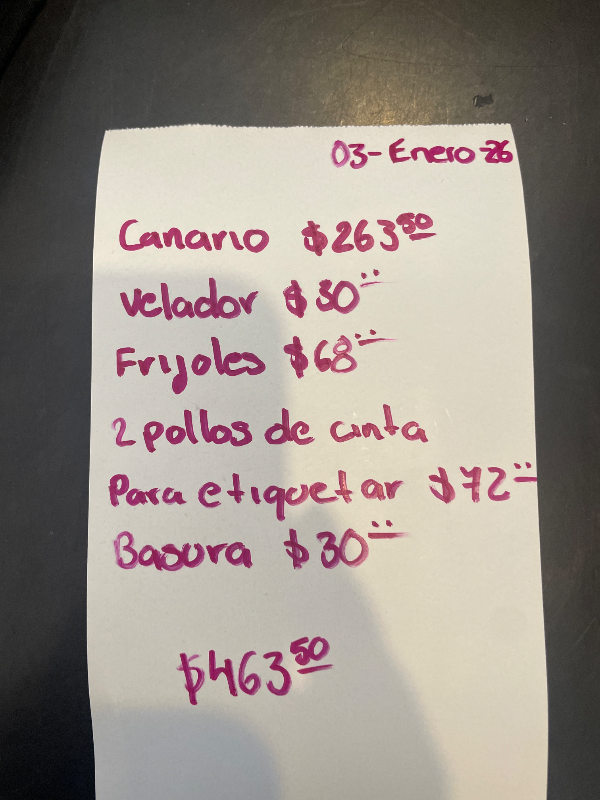 03-Enero-26
Canario $263.50
Velador $30
Frijoles $68
2 pollos de cinta
Para etiquetar $72
Basura $30
$463.50